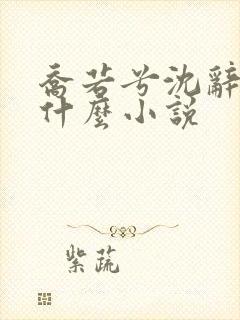 喬若兮沈辭
什麼小說
紫蔬